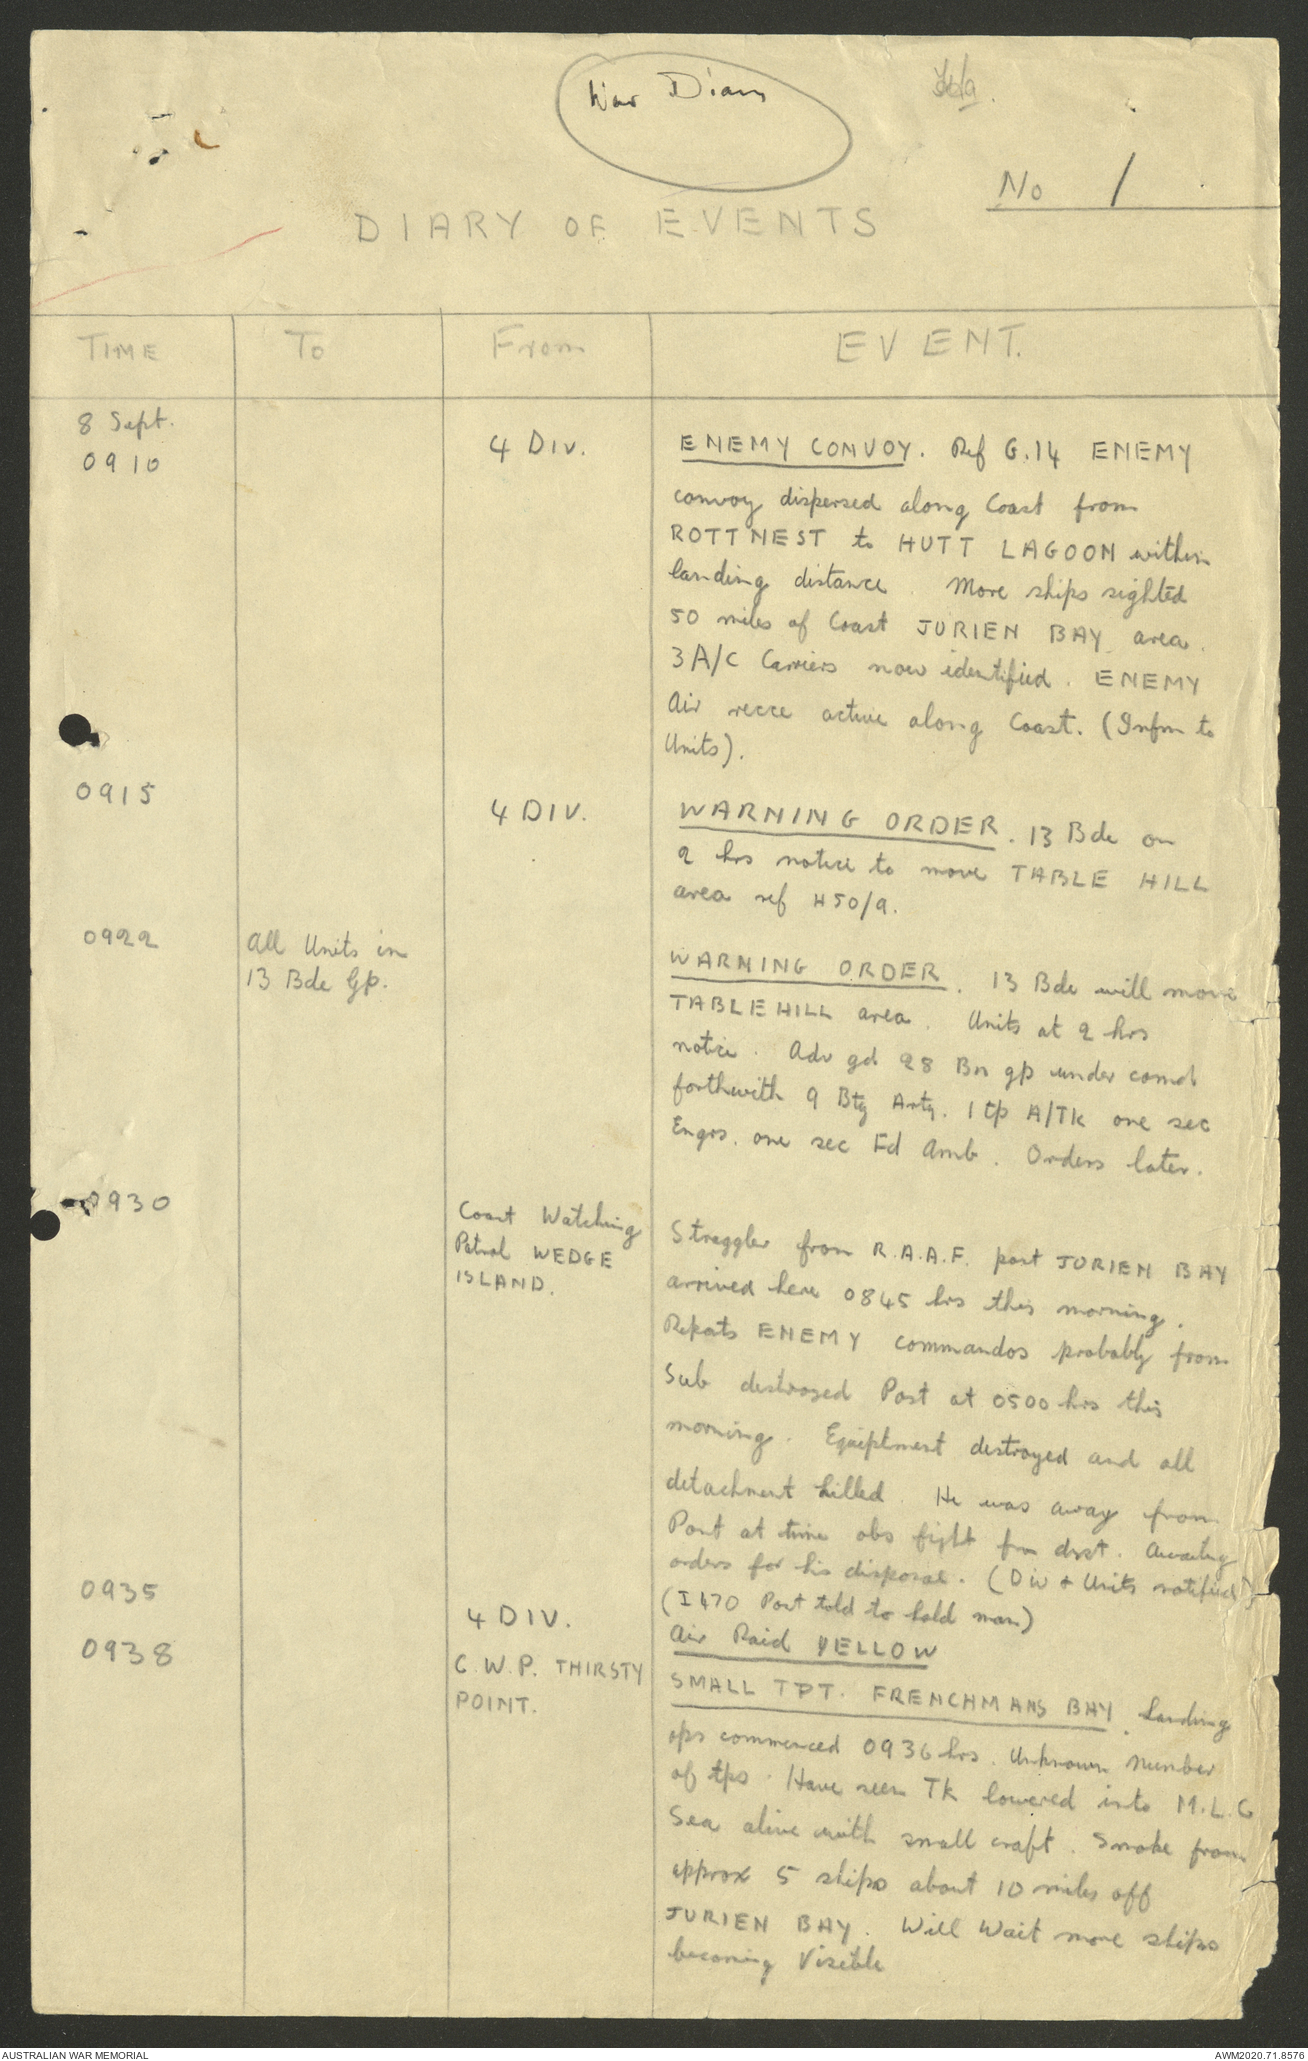 War Diary
No 1
DIARY OF EVENTS
TIME To From EVENT.
8 Sept.
0910 4 Div. ENEMY CONVOY. Ref G.14 ENEMY
convoy dispersed along Coast from
ROTTNEST to HUTT LAGOON within
landing distance. More ships sighted
50 miles of Coast JURIEN BAY area.
3 A/C Carriers now identified. ENEMY
Air recce active along Coast. (Infm to
Units).
0915 4 DIV. WARNING ORDER. 13 Bde on
2 hrs notice to move TABLE HILL
area ref H50/9.
0922 All Units in
13 Bde Gp.
WARNING ORDER. 13 Bde will move
TABLE HILL area. Units at 2 hrs
notice. Adv gd 28 Bn gp under comd
forthwith 9 Bty Arty. 1 tp A/TK one sec
Engrs. one sec Fd Amb. Orders later.
0930 Coast Watching
Patrol WEDGE
ISLAND.
Straggler from R.A.A.F. post JURIEN BAY
arrived here 0845 hrs this morning.
Reports ENEMY commandos probably from
Sub destroyed Post at 0500 hrs this
morning. Equiptment destroyed and all
detachment killed. He was away from
Post at time obs fight fm dist. Awaiting
orders for his disposal. (Div & Units notified)
(I 470 Post told to hold man)
0935 4 DIV. Air Raid YELLOW
0938 C.W.P. THIRSTY
POINT.
SMALL TPT. FRENCHMANS BAY. Landing
ops commenced 0936 hrs. Unknown number
of tps. Have seen TK lowered into M.L.C
Sea alive with small craft. Smoke from
approx 5 ships about 10 miles off
JURIEN BAY. Will Wait more ships
becoming Visible
AUSTRALIAN WAR MEMORIAL AWM2020.71.8576